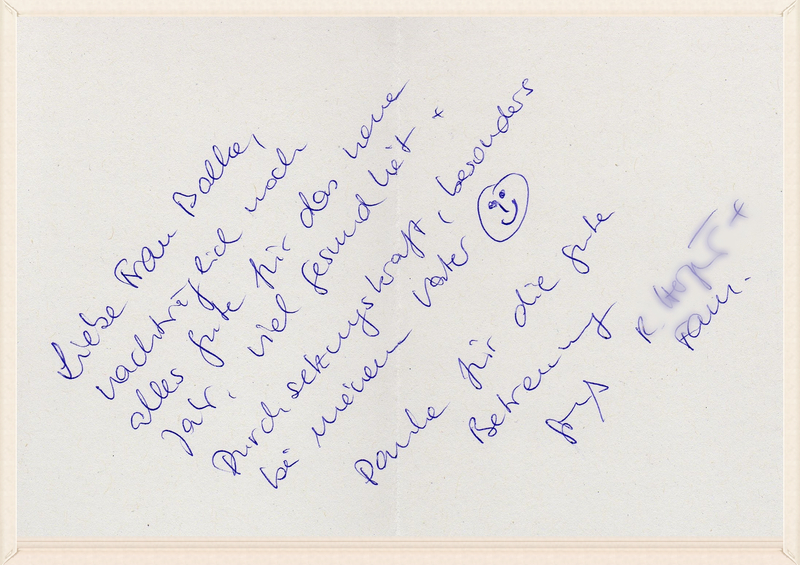 Liebe Frau Balke,
nachträglich noch
alles gute für das neue
Jahr, viel gesundheit +
Durchsetzungskraft, besonders
bei meinem Vater
Danke für die gute
Betreuung
Gruß
K. +
Fam.